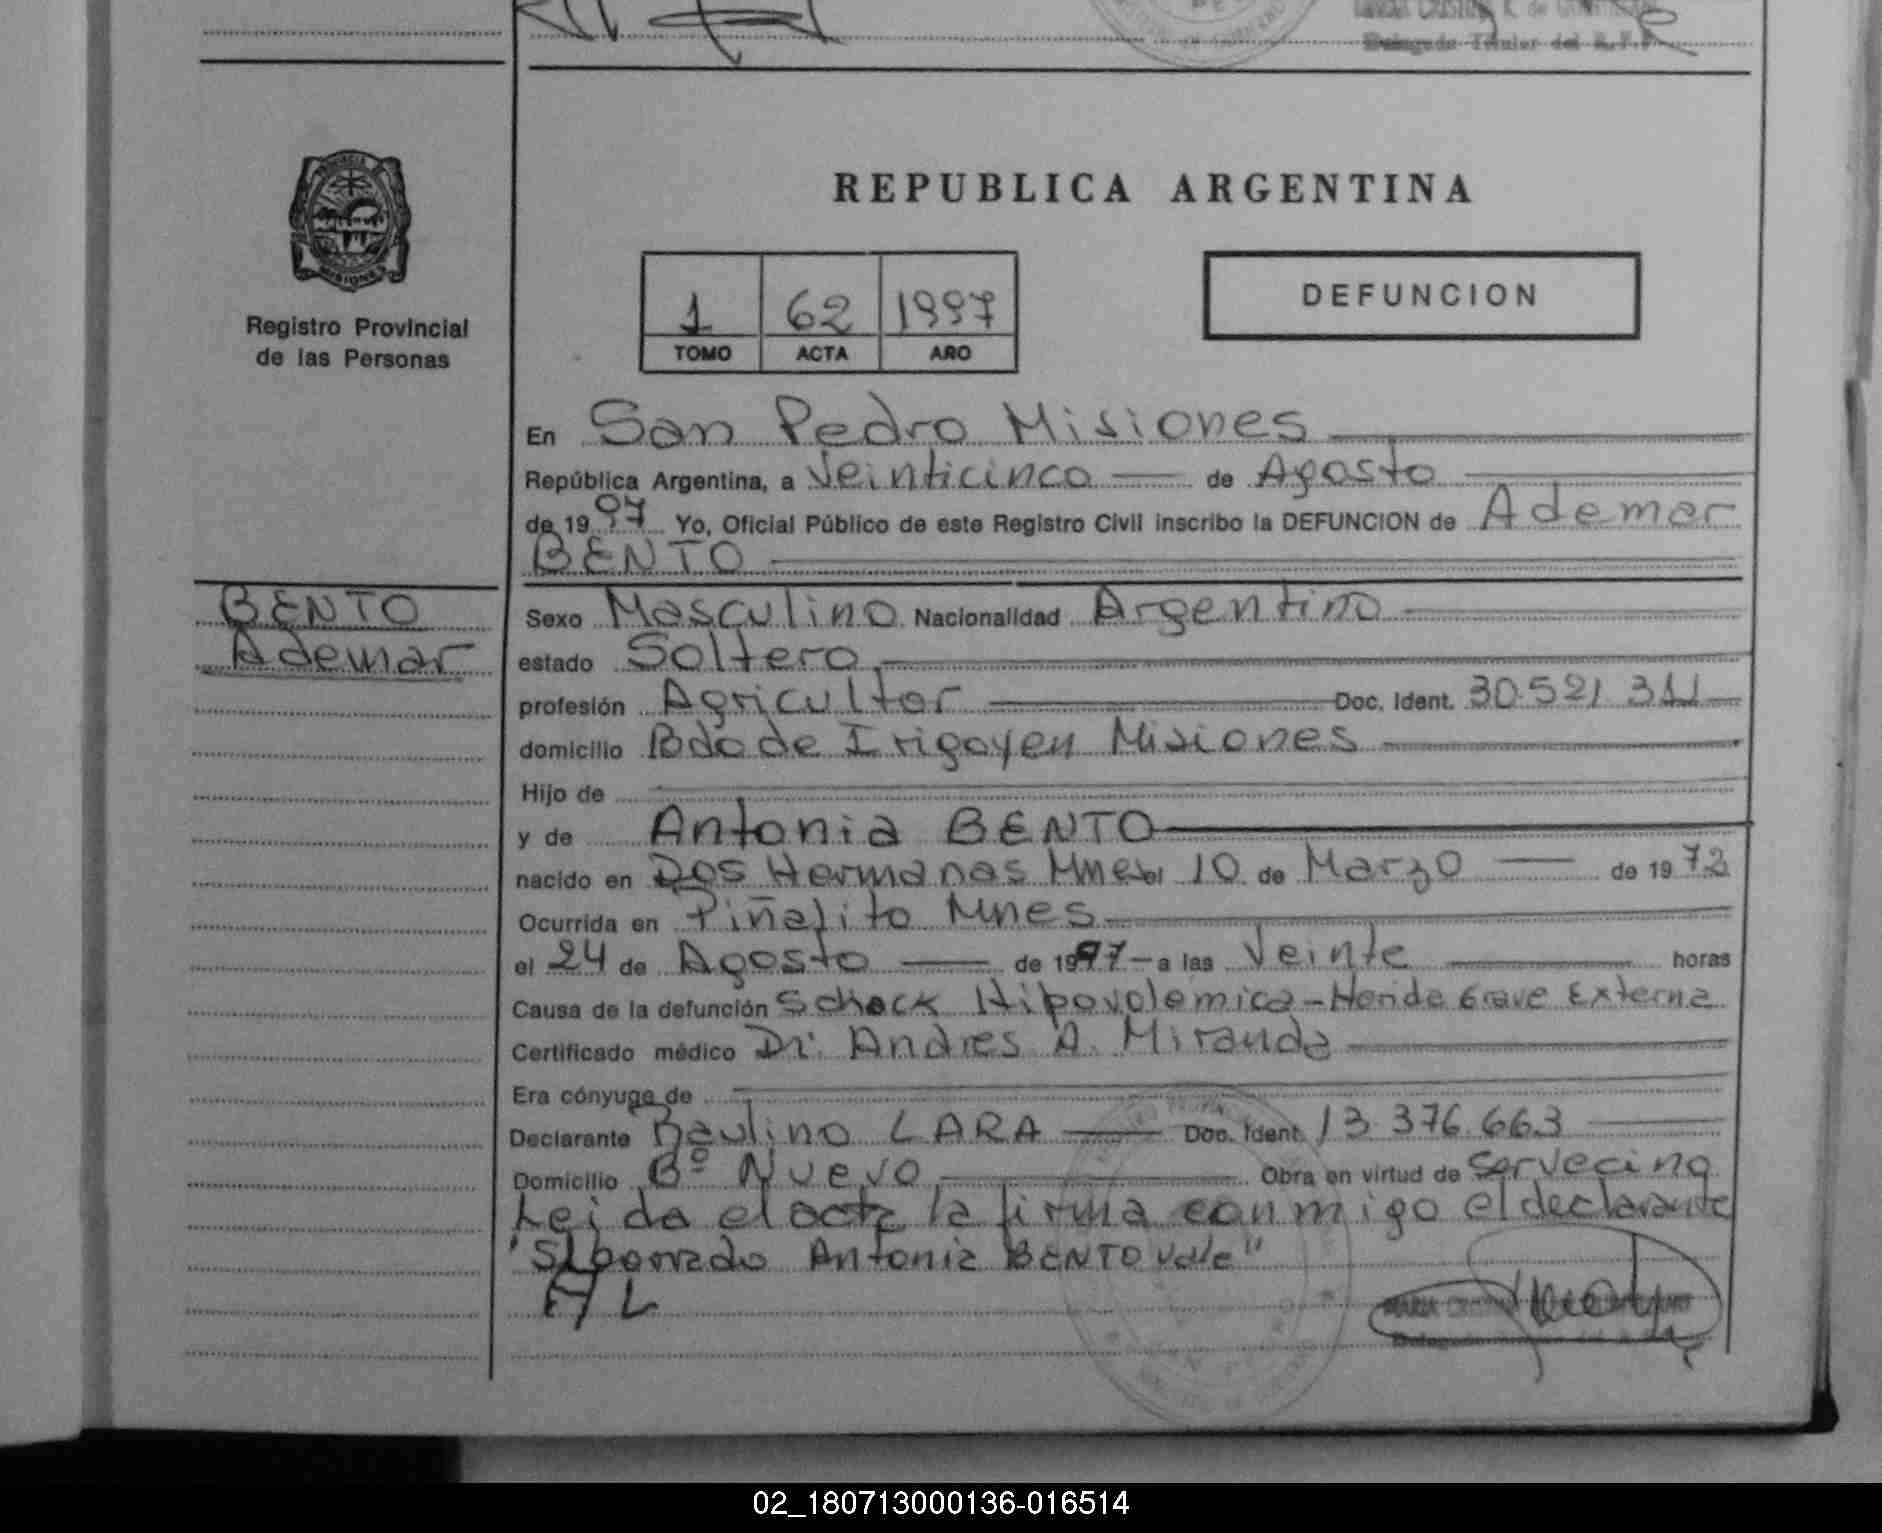 Delegado Titular del R.P.P.
REPUBLICA ARGENTINA
Registro Provincial
de las Personas
1 62 1997
TOMO ACTA AÑO
DEFUNCION
En San Pedro Misiones
República Argentina, a Veinticinco de Agosto
de 1997 Yo, Oficial Público de este Registro Civil inscribo la DEFUNCION de Ademar
BENTO
BENTO
Ademar
Sexo Masculino Nacionalidad Argentino
estado Soltero
profesión Agricultor Doc. Ident. 30.521.311
domicilio Bdo de Irigoyen Misiones
Hijo de
y de Antonia BENTO
nacido en Dos Hermanas Mnes el 10 de Marzo de 1972
Ocurrida en Piñalito Mnes
el 24 de Agosto de 1997 a las Veinte horas
Causa de la defunción Schock Hipovolemica - Herida Grave Externa
Certificado médico Dr. Andres A. Miranda
Era cónyuge de
Declarante Paulino LARA Doc. Ident. 13.376.663
Domicilio Bº Nuevo Obra en virtud de
Leida el acta la firma conmigo el declarante
"S/borrado Antonia BENTO vale"
02_180713000136-016514